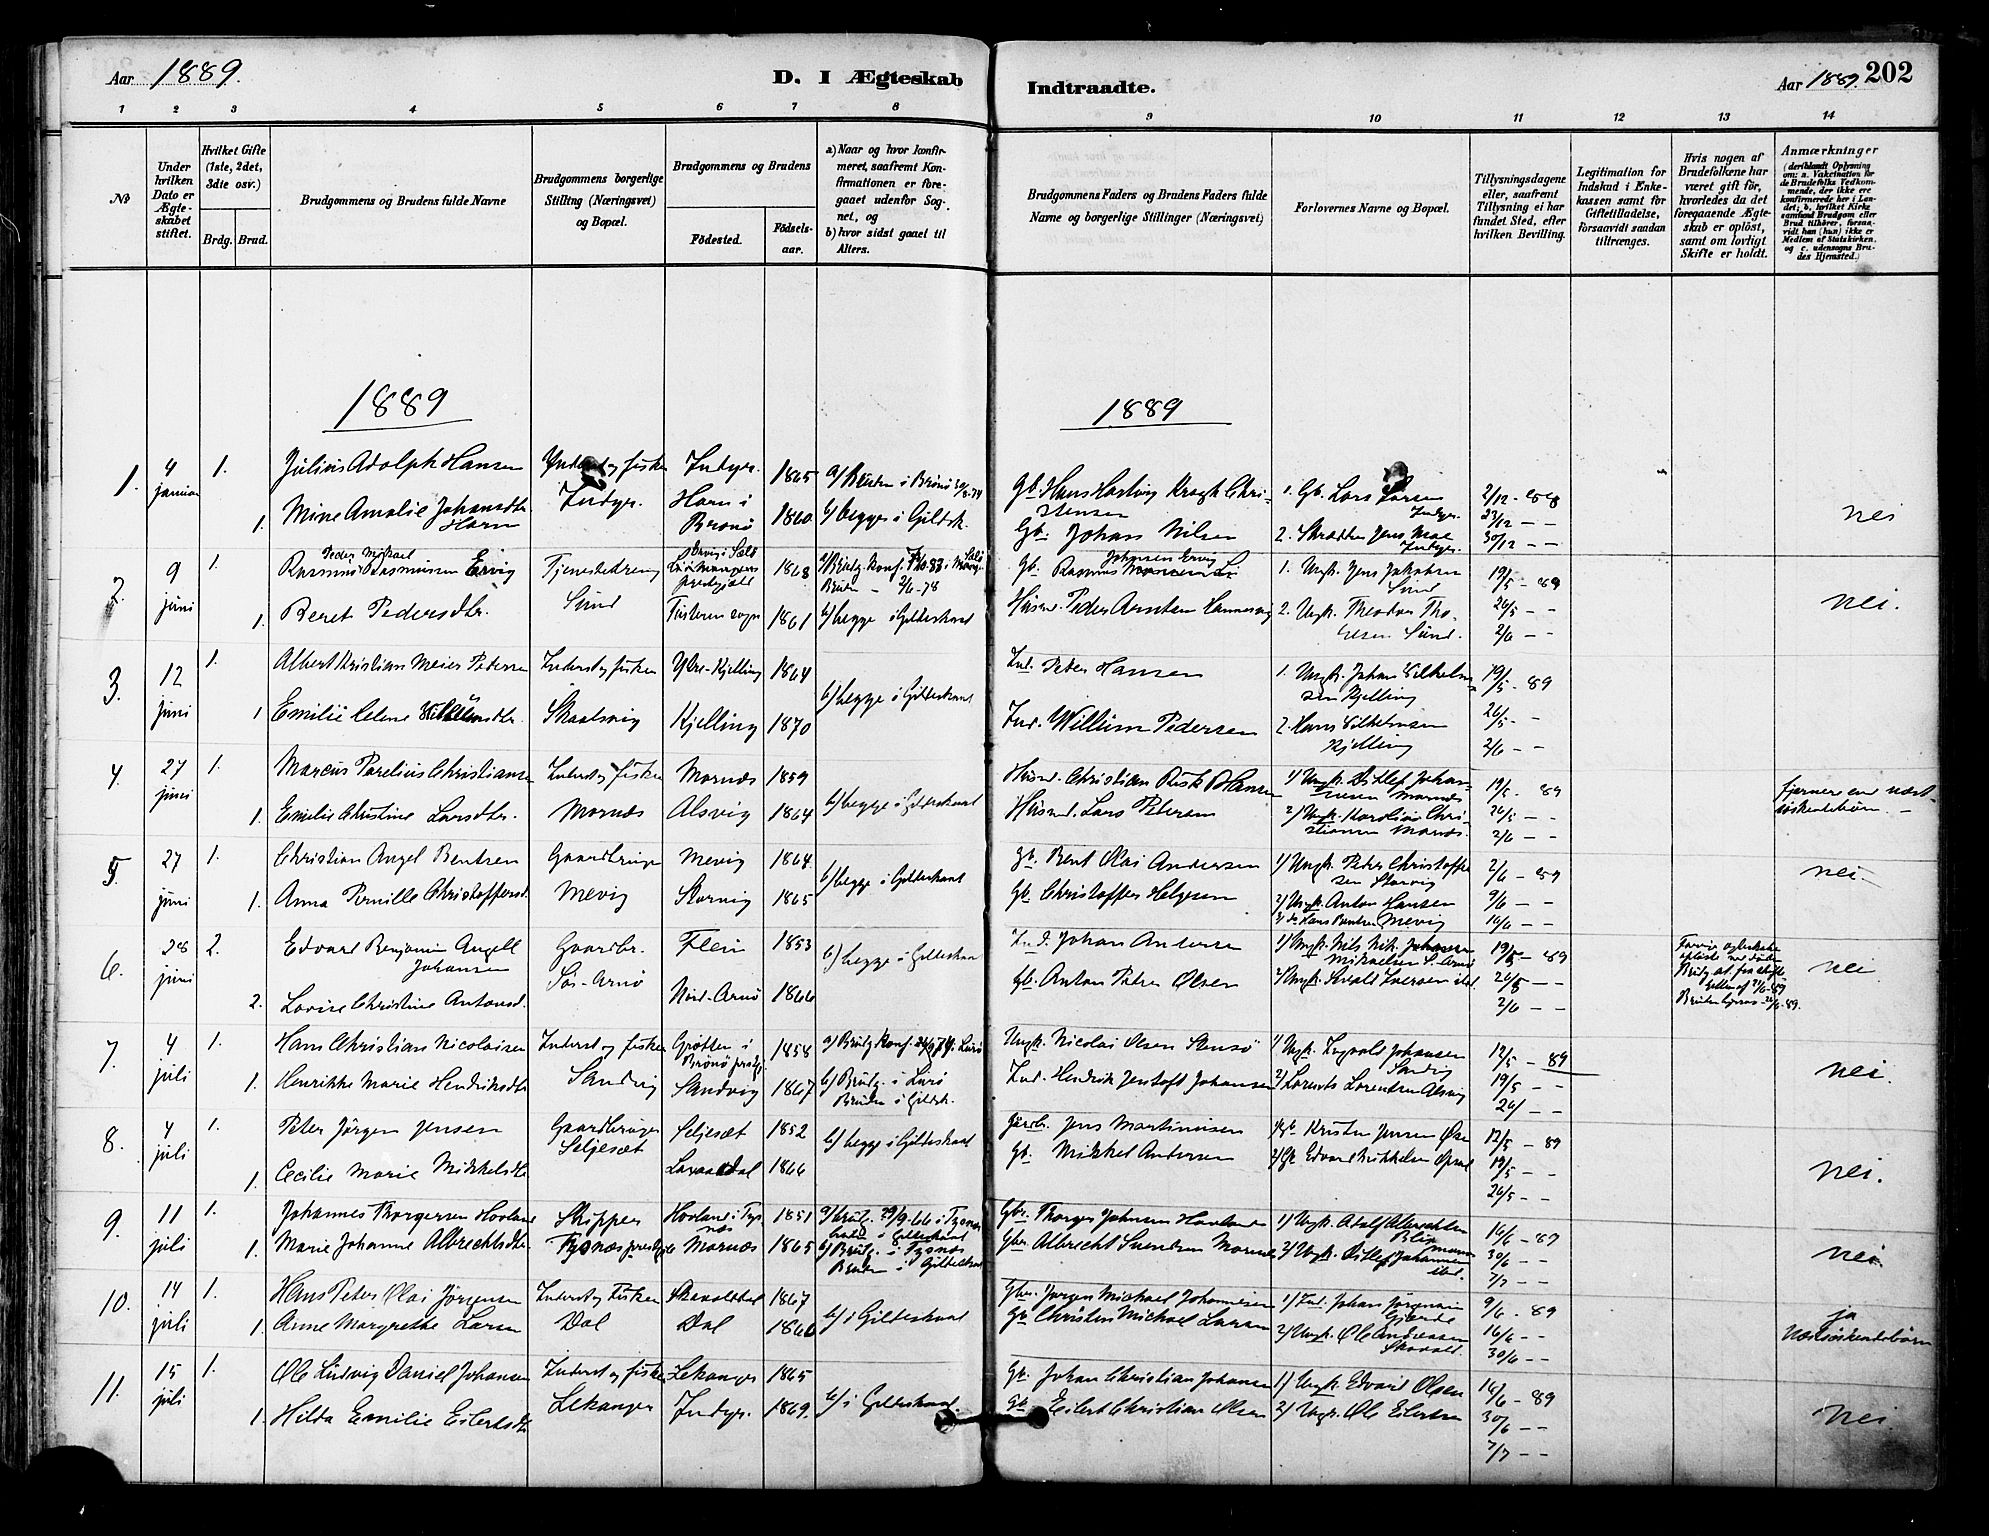 Aar 1889.
D. I Ægteskab
Indtraadte.
Aar 1889. 202
1 2 3 4 5 6 7 8 9 10 11 12 13 14
No
Under hvilken Dato er Ægteskabet stiftet.
Hvilket Gifte (1ste, 2det, 3die osv.)
Brdg. Brud.
Brudgommens og Brudens fulde Navne
Brudgommens borgerlige Stilling (Næringsvei) og Bopæl.
Brudgommens og Brudens
Födested.
Födselsaar.
a) Naar og hvor konfirmeret, saafremt Konfirmationen er foregaaet udenfor Sognet, og
b) hvor sidst gaaet til Alters.
Brudgommens Faders og Brudens Faders fulde Navne og borgerlige Stillinger (Næringsvei)
Forlovernes Navne og Bopæl.
Tillysningsdagene eller, saafremt Tillysning ei har fundet Sted, efter hvilken Bevilling.
Legitimation for Indskud i Enkekassen samt for Giftetilladelse, forsaavidt saadan tiltrænges.
Hvis nogen af Brudefolkene har været gift för, hvorledes da det foregaaende Ægteskab er oplöst, samt om lovligt Skifte er holdt.
Anmærkninger
(deriblandt Oplysning om: a. Vakcination for de Brudefolks Vedkommende, der ikke ere konfirmerede her i Landet; b. hvilket Kirkesamfund Brudgom eller Brud tilhører, forsaavidt han (hun) ikke er Medlem af Statskirken, og c. udensogns Brudes Hjemsted.)
1889
1889
1. 4 januar 1. Julius Adolph Hansen Inderst og fisker Indyr. 1865 a) Bruden i Brönö
Gb. Hans Hartvig Kragh Christensen 1. Gb. Lars Larsen Indyr. 2/12 - 88
1. Mine Amalie Johansdtr. Horn Indyr. Horn i Brönö 1860 b) begge i Gildsk.
Gb. Johan Nilsen 2. Skrædder Jens Moe Indyr. 23/12 - - 30/12 - - nei
2. 9 juni Peder Mikael Rasmus Rasmussen Ervig Tjenestedreng 1868
Gb. Rasmus Johansen Ervig 1. Ungk. Jens Jakobsen Sund 19/5 - 89
1. Beret Pedersdtr. Sund Tusteren sogn 1861 b) begge i Gildeskaal
Husm. Peder Arntsen 2. Ungk. Theodor Sund. 26/5 - - 2/6 - - nei.
3. 12 juni 1. Albert Kristian Meier Petersen Inderst og fisker Ytre-Kjelling 1864 b) begge i Gildeskaal
Ind. Peter Hansen 1. Ungk. Johan Vilhelmsen Kjelling 19/5 - 89
1 Emilie Celene Skaalsvig Kjelling 1870
Ind. Willum Pedersen 2. Hans Vilhelmsen Kjelling 26/5 - - 2/6 - -
4. 27 juni 1. Marcus Parelius Christiansen Inderst og fisker Mornæs 1859
Husm. Christian Rusk Hansen 1) Ungk. Ditlef Johannesen Mornæs 19/5 - 89
1. Emilie Christine Larsdtr. Mornæs Alsvig 1864 b) begge i Gildeskaal
Husm. Lars Petersen 2) Ungk. Karolius Christiansen Mornæs. 26/5 - - 2/6 - - fjernere end næstsöskendebörn. -
5. 27 juni 1. Christian Angel Bentsen Gaardbruger Mevig 1864
Gb. Bent Olai Andersen 1) Ungk. Peter Christoffersen Storvig 2/6 - 89
1. Anna Pernille Christoffersd. Mevig Storvig 1865 b) begge i Gildeskaal
Gb. Christoffer Helgesen 2) Ungk. Anton Hansen Mevig 9/6 - - 16/6 - - nei.
6. 28 juni 2. Edvard Benjamin Angell Johansen Gaardbr. Flein 1853 b) begge i Gildeskaal
Ind. Johan Andersen 1) Ungk. Nils Nik. Mikkelsen S. Arnö 19/5 - 89
2. Lovise Christine Antonsd. Sör-Arnö Nord-Arnö 1866
Gb. Anton Peter Olsen 26/5 - - 2/6 - - nei
7. 4 juli 1. Hans Christian Nicolaisen Inderst og fisker Grötten i Brönö prestgj. 1858
Ungk. Nicolai Olsen Stensö 1) Ungk. Ingvald Johansen Sandvig 12/5 - 89
1. Henrikke Marie Hendriksdtr Sandvig Sandvig 1867 b) Brudg. i Lurö Bruden i Gildsk.
Ind. Hendrik Jentoft Johansen 2) Lorents Lorentsen Alsvig 19/5 - - 26/ - - nei.
8. 4 juli 1. Peter Jörgen Jensen Gaardbruger Seljesæt Seljesæt 1852 b) begge i Gildeskaal
Jens Martinusen Kristen Jensen 12/5 - 89
1. Cecilie Marie Mikkelsdtr. 1866
Gb. Mikkel Andersen 2) Gb Edvard Mikkelsen 19/5 - - 26/5 - - nei.
9. 11 juli 1. Johannes Thorgersen Hovland Skipper Hovland i Tysnæs 1851 a) Brudg. 29/9-66 i Tysnæs
Gbr. Thorger Johnsen Hovland 1) Ungk. Adolf Albrechtsen 16/6 - 89
1. Marie Johanne Albrechtsdtr. Tysnæs prestgj. Mornæs 1865 b) Brudg. i Tysnæs Bruden i Gildeskaal
Gbr. Albrecht Svendsen Mornæs 2) Ungk. Ditlef Johannesen ibd. 30/6 - - 7/7 - - nei.
10. 14 juli 1. Hans Peter Olai Jörgensen Inderst og Fisker Skavolddal 1867
Gbr. Jörgen Michael Johannesen 1) Ind. Johan Jörgensen Gjærde 9/6 - 89
1. Anne Margrethe Larsen Dal Dal 1860 b) i Gildeskaal
Gb. Christen Michael Larsen 2) Ungk. Ole Andreassen Skavold. 16/6 - - 30/6 - - ja Næstsöskendebörn
11. 15 juli 1. Ole Ludvig Daniel Johansen Inderst og fisker Lekanger 1865
Gb. Johan Christian Johansen 1) Ungk. Edvard Olsen 16/6 - 89
1. Hilda Emilie Eilertsdtr Lekanger Indyr. 1869. b) i Gildeskaal.
Gb. Eilert Christian Olsen 2) Ungk. Ole Eilertsen 30/6 - - 7/7 - - nei